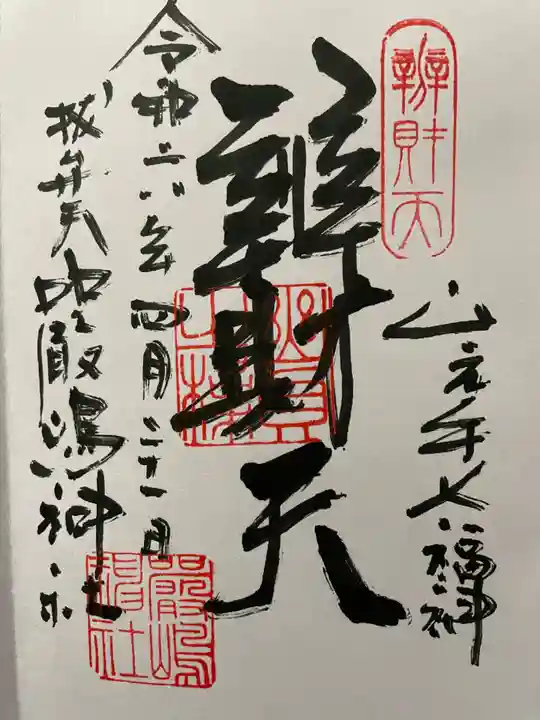 辨財天
山之手七福神
辨財天
令和六年四月二十一日
抜弁天厳嶋神社
嚴嶋神社